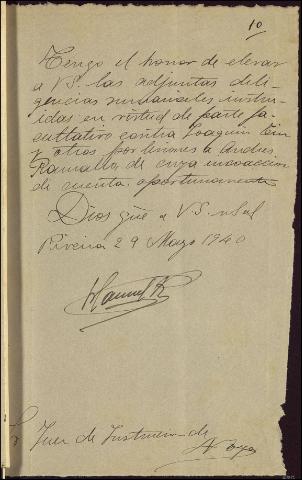 10
Tengo el honor de elevar
a VS. las adjuntas dili-
gencias sumariales instru-
idas en virtud de parte fa-
cultativo contra Joaquin
y otros por lesiones a Andres
Ramallo de cuya incoaccion
di cuenta oportunamente
Dios gûe a V.S. m
Riveira 29 Mayo 1940
Manuel R
Sr Juez de Instruccion de
Noya